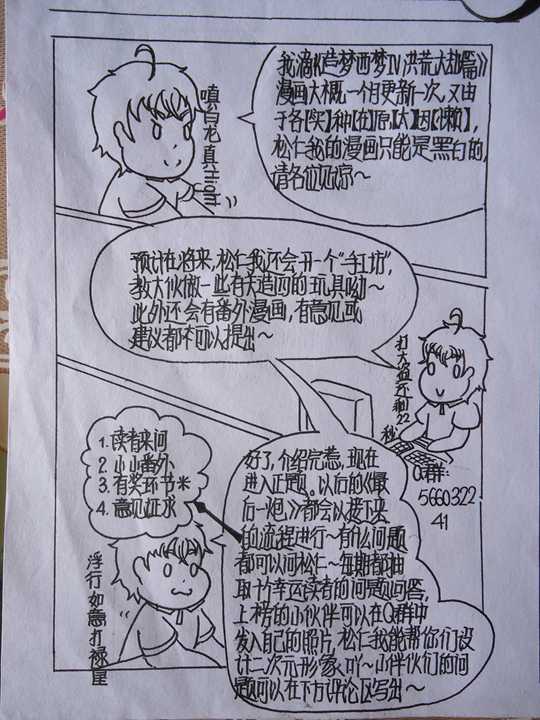 我滴《造梦西梦Ⅳ洪荒大劫篇》
漫画大概一个月更新一次,又由
于各【实】种【在】原【太】因【懒】,
松仁我的漫画只能是黑白的,
请各位见谅～
嗔白龙真High!
预计在将来,松仁我还会开一个“手工坊”,
教大伙做一些有关造四的玩具呦～
此外还会有番外漫画,有意见或
建议都可以提出～
打大圣还剩22秒
Q群:
5660322
41
1.读者来问
2.小小番外
3.有奖环节*
4.意见征求
好了,介绍完惹,现在
进入正题。以后的《最
后一炮》都会以接下来
的流程进行～有什么问题
都可以问松仁～每期都抽
取十个幸运读者的问题回答,
上榜的小伙伴可以在Q群中
发入自己的照片,松仁我能帮你们设
计二次元形象吖～小伴伙们的问
题可以在下方评论区写出～
浮行如意打禄星